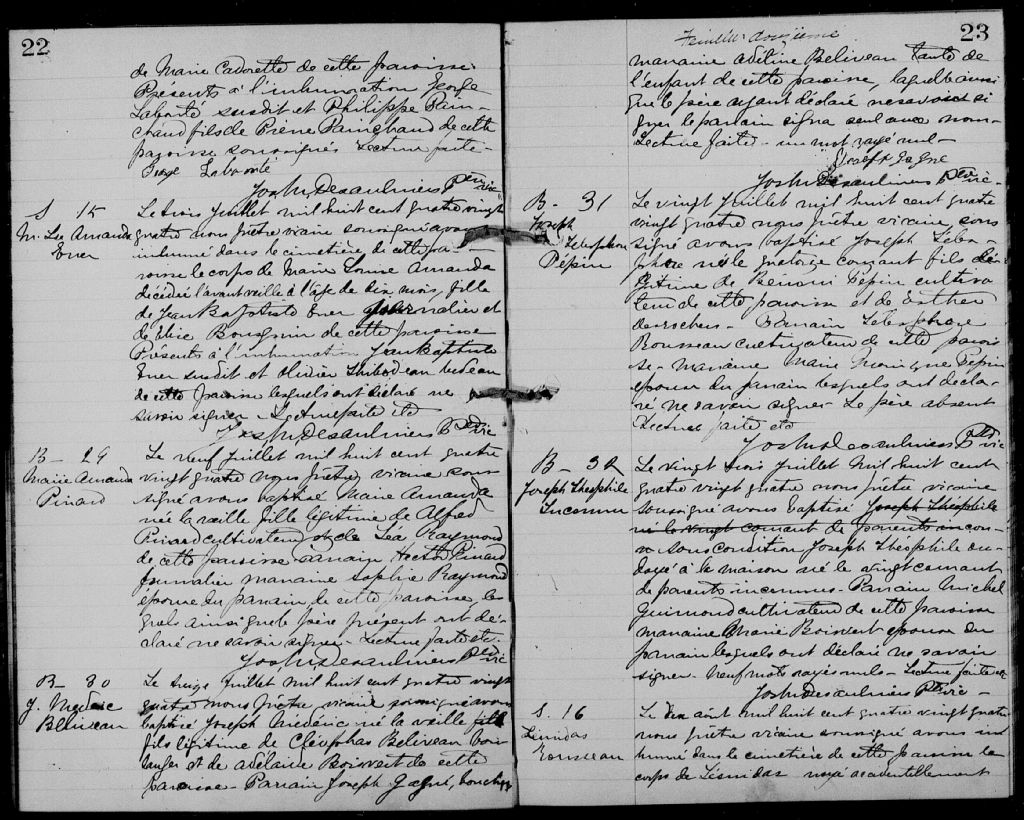 22
de Marie Cadorette de cette paroisse.
Présents à l'inhumation George
Labonté susdit et Philippe Pain-
chaud fils de Pierre Painchaud de cette
paroisse soussignés Lecture faite-
George Labonté
Jos. H. Desaulniers Ptre vic
S 15
M. Ls Amanda
Ener
Le trois Juillet mil huit cent quatre vingt
quatre nous prêtre vicaire soussigné avons
inhumé dans le cimetière de cette pa-
roisse le corps de Marie Louise Amanda
décédée l'avant veille à l'âge de dix mois, fille
de Jean Baptiste Ener journalier et
de Elise Bourgoin de cette paroisse
Présents à l'inhumation Jean Baptiste
Ener susdit et Olidier Thibodeau bedeau
de cette paroisse lesquels ont déclaré ne
savoir signer - Lecture faite etc
Jos. H. Desaulniers Ptre vic
B - 29
Marie Amanda
Pinard
Le neuf Juillet mil huit cent quatre
vingt quatre nous prêtre vicaire sous-
signé avons baptisé Marie Amanda
née la veille fille légitime de Alfred
Pinard cultivateur et de Léa Raymond
de cette paroisse parrain Hector Pinard
journalier marraine Sophie Raymond
épouse du parrain de cette paroisse les
quels ainsi que le père présent ont dé-
claré ne savoir signer - Lecture faite etc.
Jos. H. Desaulniers Ptre vic
B - 30
J. Mederic
Beliveau
Le treize Juillet mil huit cent quatre vingt
quatre nous prêtre vicaire soussigné avons
baptisé Joseph Médéric né la veille fils
fils légitime de Cléophas Beliveau bou
langer et de Adélaïde Boisvert de cette
paroisse - Parrain Joseph Gagné, boucher
23
Feuillet douzième
marraine Adéline Beliveau tante de
l'enfant de cette paroisse, laquelle ainsi
que le père ayant déclaré ne savoir si
gner le parrain signa seul avec nous-
Lecture faite - un mot rayé nul -
Joseph Gagné
Jos. H. Desaulniers Ptre vic -
B - 31
Joseph
Télesphore
Pépin
Le vingt Juillet mil huit cent quatre
vingt quatre nous prêtre vicaire sous
signé avons baptisé Joseph Téles
phore né le quatorze courant fils lé-
gitime de Benoni Pépin cultiva
teur de cette paroisse et de Esther
Desrochers - Parrain Télesphore
Rousseau cultivateur de cette parois
se - Marraine Marie Monique Pépin
épouse du parrain lesquels ont décla-
ré ne savoir signer - Le père absent
Lecture faite etc
Jos. H. Desaulniers Ptre vic
B - 32
Joseph Théophile
Inconnu
Le vingt trois Juillet mil huit cent
quatre vingt quatre nous prêtre vicaire
soussigné avons baptisé Joseph Théophile
né le vingt courant de parents incon-
n sous condition Joseph Théophile on-
doyé à la maison né le vingt courant
de parents inconnus - Parrain Michel
Guimond cultivateur de cette paroisse
marraine Marie Boisvert épouse du
parrain lesquels ont déclaré ne savoir
signer - Neuf mots rayés nuls - Lecture faite etc
Jos. H. Desaulniers Ptre vic -
S. 16
Léonidas
Rousseau
Le dix août mil huit cent quatre vingt quatre
nous prêtre vicaire soussigné avons in
humé dans le cimetière de cette paroisse le
corps de Léonidas noyé accidentellement